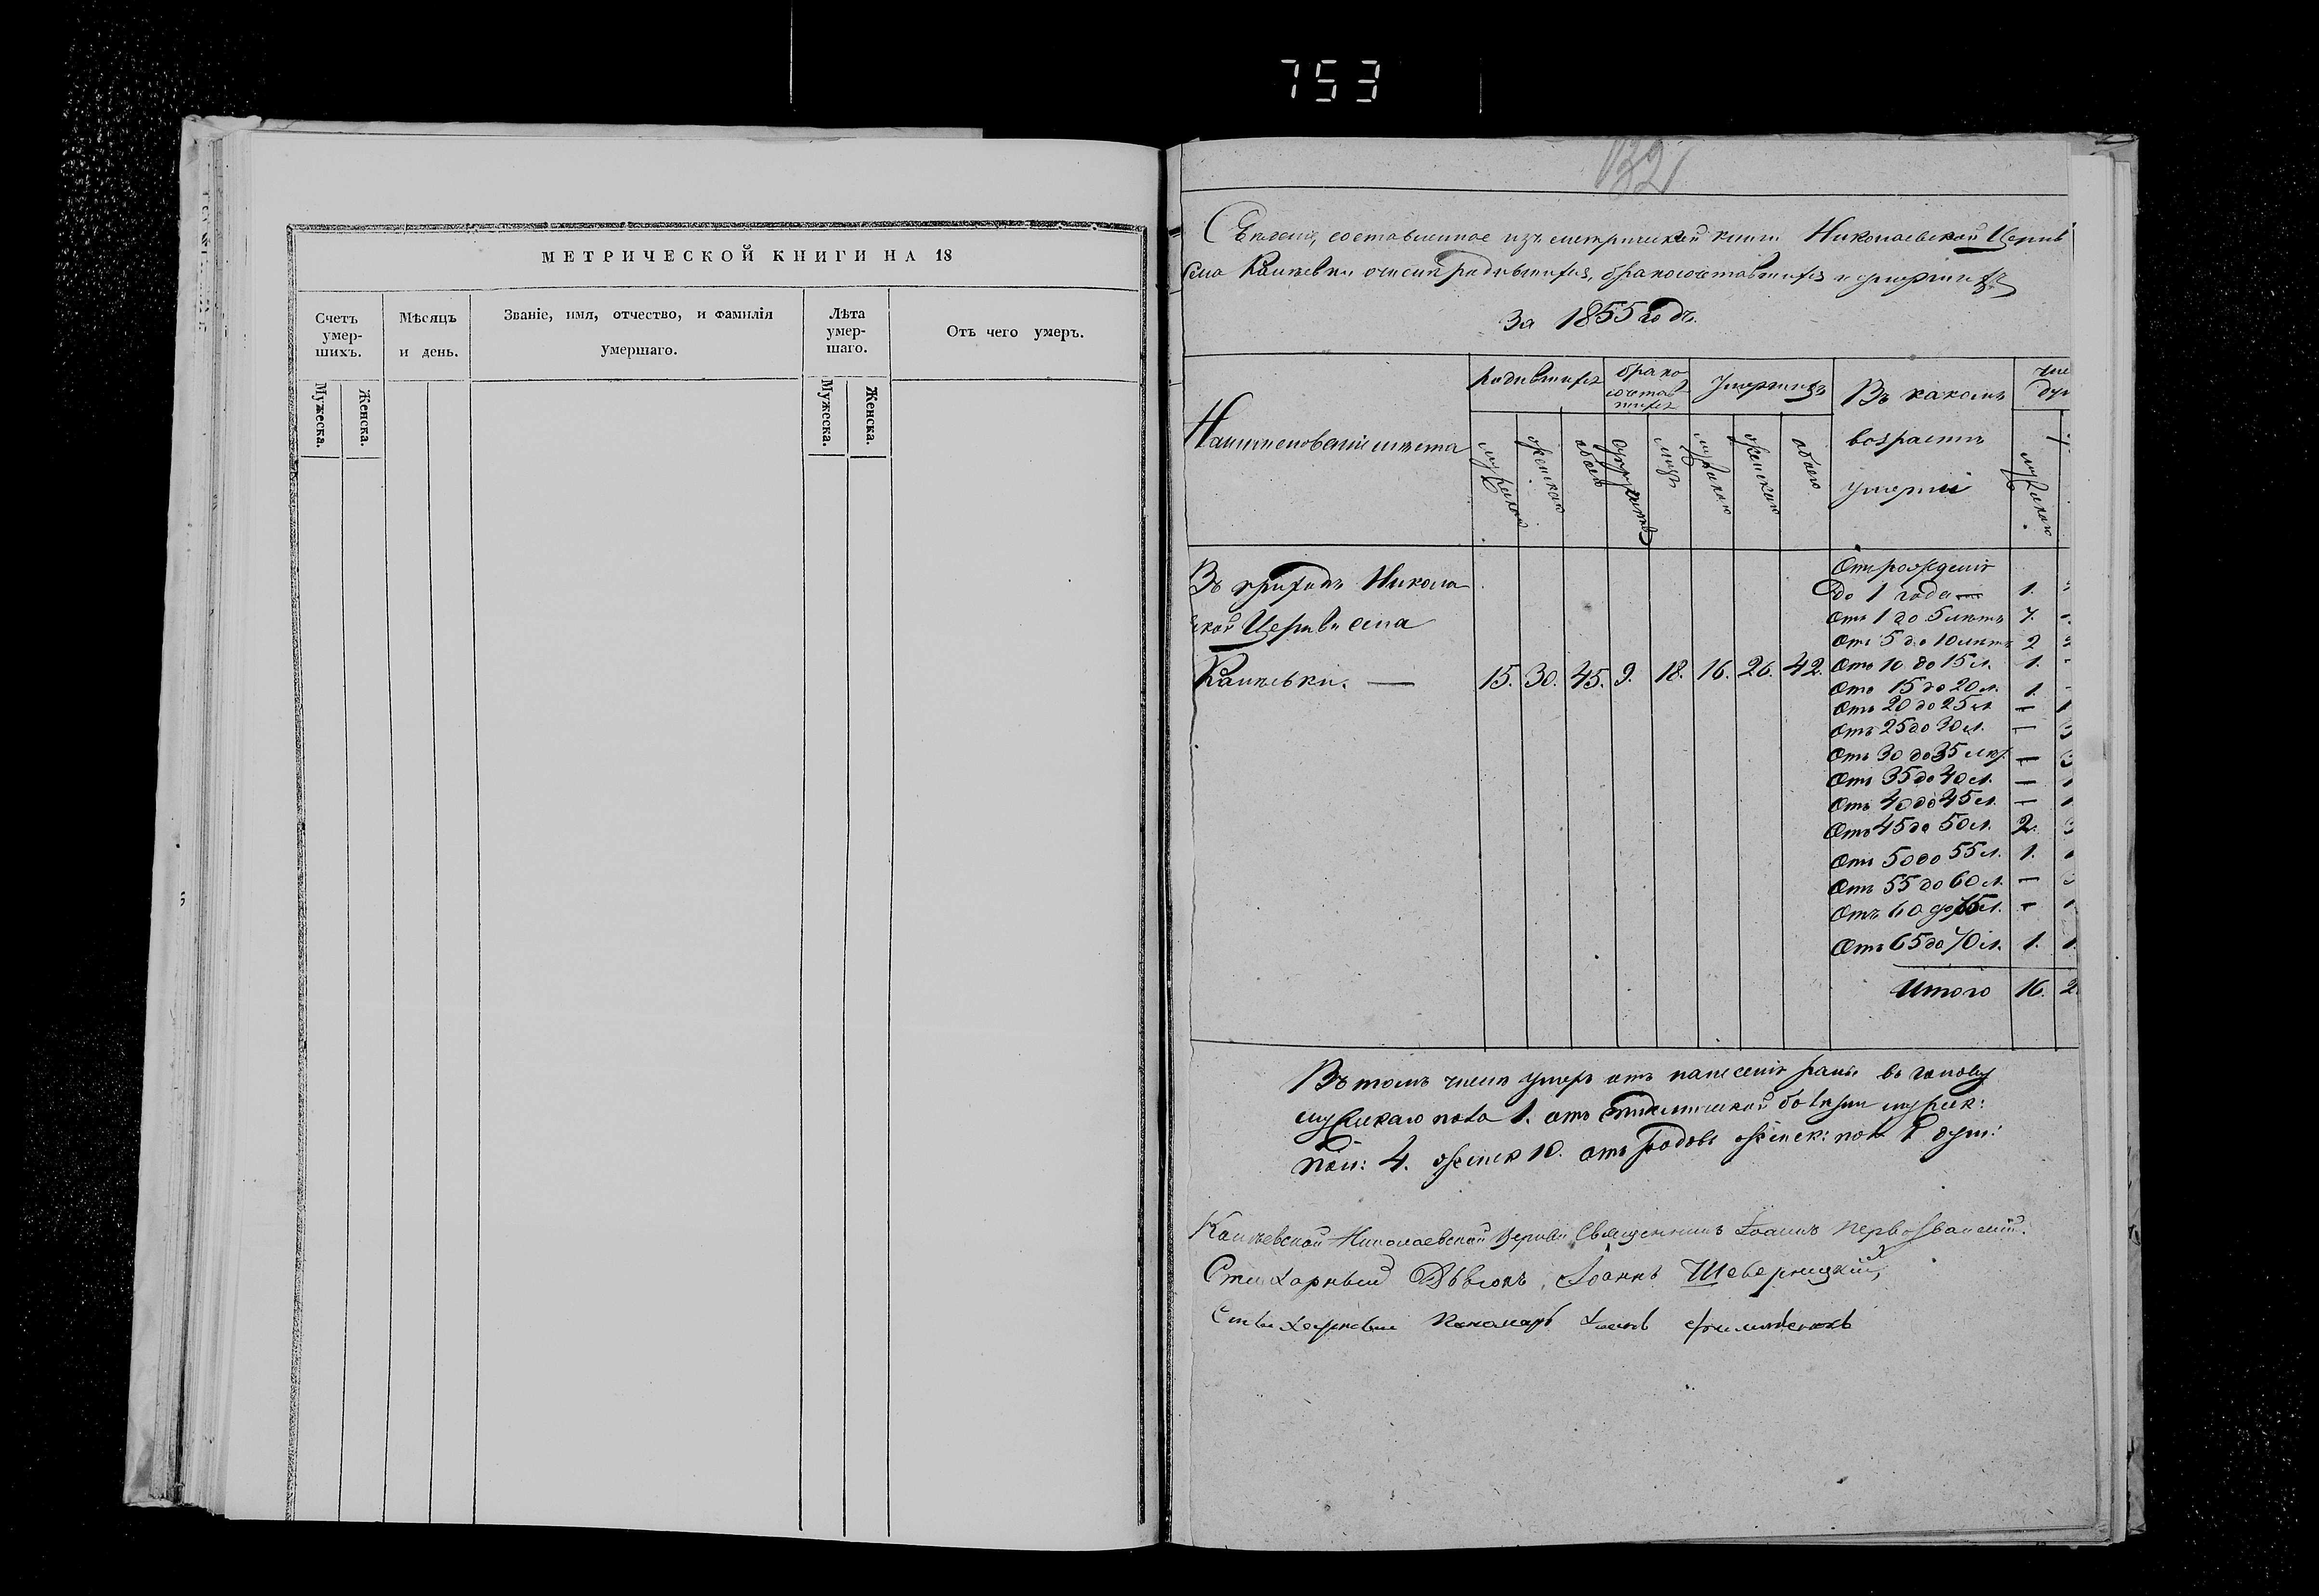 753
МЕТРИЧЕСКОЙ КНИГИ НА 18
Счетъ умер-шихъ.
Мѣсяцъ и день.
Званіе, имя, отчество, и фамилія умершаго.
Лѣта умер-шаго.
Отъ чего умеръ.
Мужеска.
Женска.
Мужеска.
Женска.
132
составленное изъ метрической книги Николаевской Церкви
села о числѣ родившихся, бракосочетавшихся и умершихъ
За 1855 годъ.
Наименованіе мѣста
родившихся
брако сочетав шихся
Умершихъ
Въ какомъ возрастѣ умерли
мужскаго
женскаго
обоего
супружествъ
лицъ
мужскаго
женскаго
обоего
мужскаго
Въ приходѣ Никола
ской Церкви села
15. 30. 45. 9. 18. 16. 26. 42.
Отъ рожденія
до 1 года — 1.
Отъ 1 до 5 лѣтъ 7.
Отъ 5 до 10 лѣтъ 2
Отъ 10 до 15 л. 1.
Отъ 15 до 20 л. 1.
Отъ 20 до 25 л —
Отъ 25 до 30 л. —
Отъ 30 до 35 лѣт. —
Отъ 35 до 40 л. —
Отъ 40 до 45 л. —
Отъ 45 до 50 л. 2.
Отъ 50 до 55 л. 1.
Отъ 55 до 60 л. —
Отъ 60 до 65 л. —
Отъ 65 до 70 л. 1. 1.
Итого 16.
Въ томъ числѣ умеръ отъ нанесенія раны въ голову
мужскаго пола 1. отъ эпидемической болѣзни мужск:
пол: 4. женск 10. отъ родовъ женск: пол душ:
Николаевской Церкви Священникъ Іоаннъ Первозванскій.
Стихарный Дьячокъ, Іоаннъ
Стихарный Пономарь